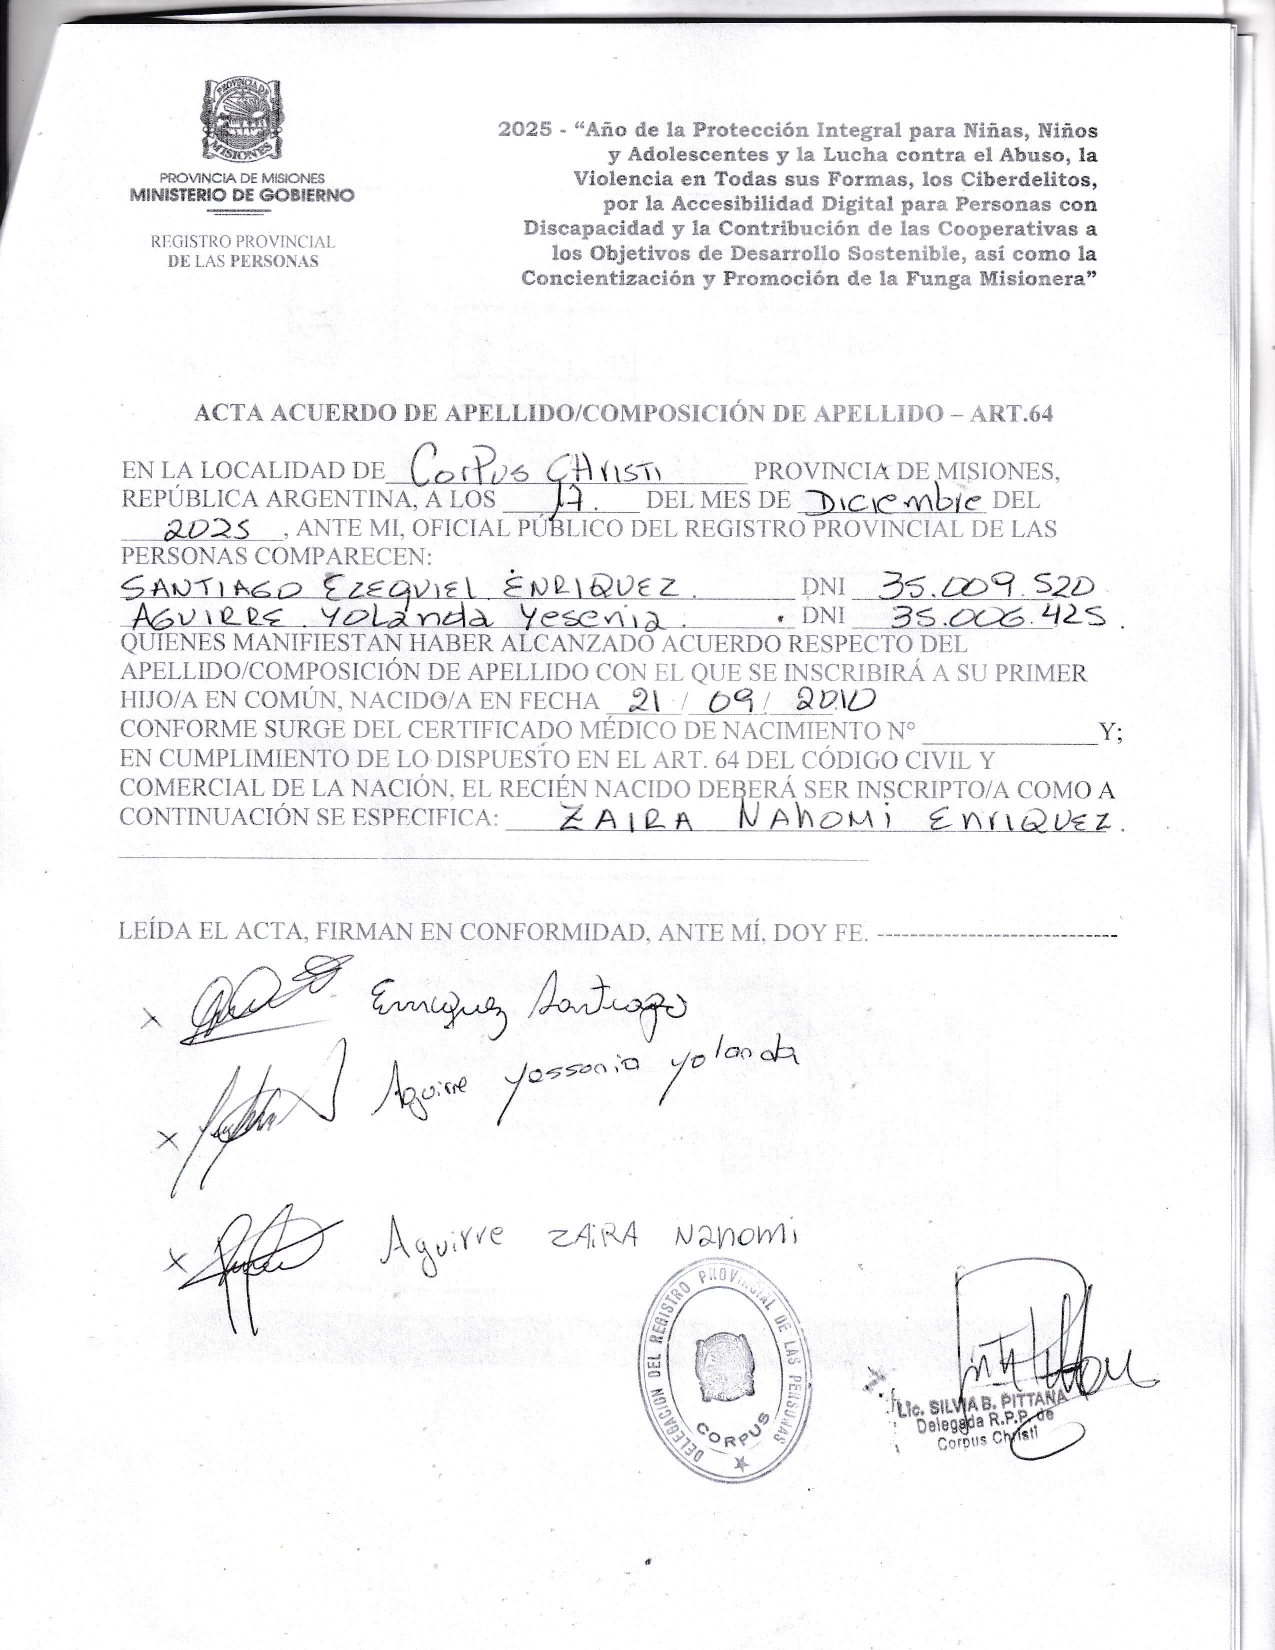 PROVINCIA DE
MISIONES
PROVINCIA DE MISIONES
MINISTERIO DE GOBIERNO
REGISTRO PROVINCIAL
DE LAS PERSONAS
2025 - “Año de la Protección Integral para Niñas, Niños
y Adolescentes y la Lucha contra el Abuso, la
Violencia en Todas sus Formas, los Ciberdelitos,
por la Accesibilidad Digital para Personas con
Discapacidad y la Contribución de las Cooperativas a
los Objetivos de Desarrollo Sostenible, así como la
Concientización y Promoción de la Funga Misionera”
ACTA ACUERDO DE APELLIDO/COMPOSICIÓN DE APELLIDO – ART.64
EN LA LOCALIDAD DE Corpus CHristi PROVINCIA DE MISIONES,
REPÚBLICA ARGENTINA, A LOS 17. DEL MES DE Diciembre DEL
2025, ANTE MI, OFICIAL PÚBLICO DEL REGISTRO PROVINCIAL DE LAS
PERSONAS COMPARECEN:
SANTIAGO EZEQUIEL ENRIQUEZ. DNI 35.009.520
AGUIRRE Yolanda Yesenia. DNI 35.006.425.
QUIENES MANIFIESTAN HABER ALCANZADO ACUERDO RESPECTO DEL
APELLIDO/COMPOSICIÓN DE APELLIDO CON EL QUE SE INSCRIBIRÁ A SU PRIMER
HIJO/A EN COMÚN, NACIDO/A EN FECHA 21 / 09 / 2010
CONFORME SURGE DEL CERTIFICADO MÉDICO DE NACIMIENTO N° Y;
EN CUMPLIMIENTO DE LO DISPUESTO EN EL ART. 64 DEL CÓDIGO CIVIL Y
COMERCIAL DE LA NACIÓN, EL RECIÉN NACIDO DEBERÁ SER INSCRIPTO/A COMO A
CONTINUACIÓN SE ESPECIFICA: ZAIRA NAhomi ENRIQUEZ.
LEÍDA EL ACTA, FIRMAN EN CONFORMIDAD, ANTE MÍ, DOY FE. -----------------------------
x Enriquez Santiago
x Aguirre Yessenia Yolanda
x Aguirre ZAIRA Nahomi
DELEGACION DEL REGISTRO PROVINCIAL DE LAS PERSONAS
CORPUS
Lic. SILVIA B. PITTANA
Delegada R.P.P. de
Corpus Christi